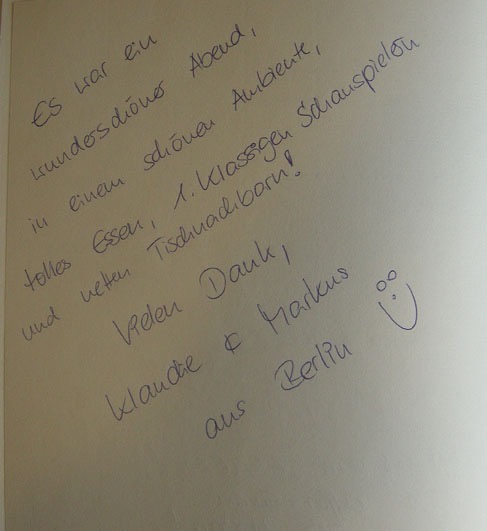 Es war ein
wunderschöner Abend,
in einem schönen Ambiente,
tolles Essen, 1. Klassigen Schauspielern
und netten Tischnachbarn!
Vielen Dank,
Klaudie & Markus
aus Berlin